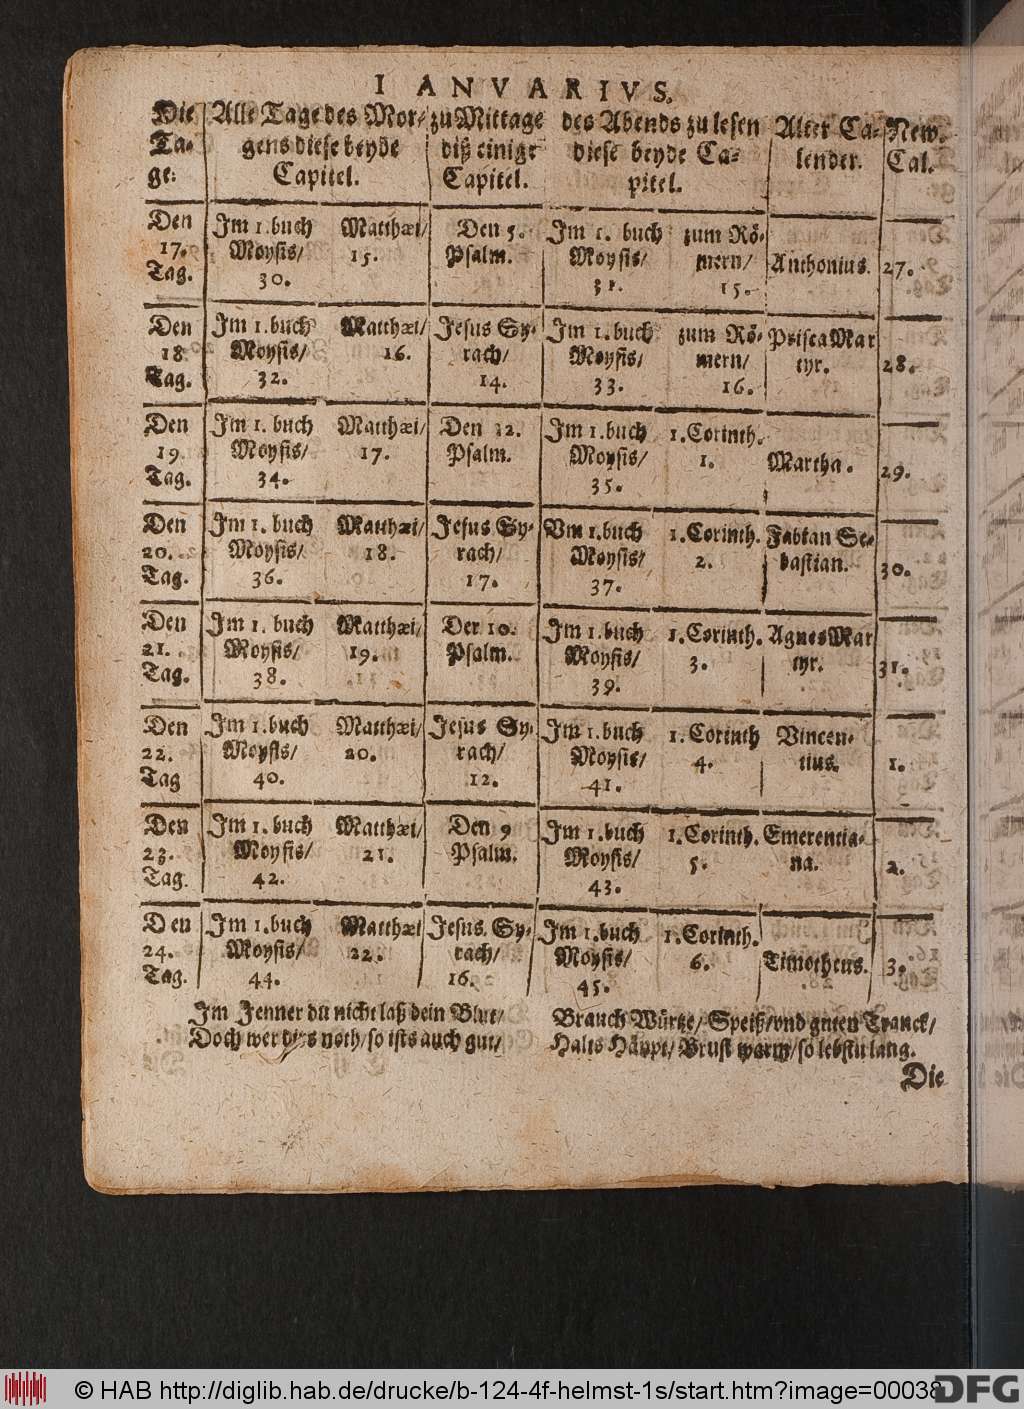 IANVARIVS.
Die Alle Tage des Mor/ zu Mittage des Abends zu lesen Alter Ca- New.
Ta- gens diese beyde diß einige diese beyde Ca- lender. Cal.
ge. Capitel. Capitel. pitel.
Den Im 1. buch Matthæi/ Den 5. Im 1. buch zum Rö-
17. Moysis/ 15. Psalm. Moysis/ mern/ Anthonius. 27.
Tag. 30. 31. 15.
Den Im 1. buch Matthæi/ Jesus Sy- Im 1. buch zum Rö- Prisca Mar
18. Moysis/ 16. rach/ Moysis/ mern/ tyr. 28.
Tag. 32. 14. 33. 16.
Den Im 1. buch Matthæi/ Den 12. Im 1. buch 1. Corinth.
19. Moysis/ 17. Psalm. Moysis/ 1. Martha. 29.
Tag. 34. 35.
Den Im 1. buch Matthæi/ Jesus Sy- Vm 1. buch 1. Corinth. Fabian Se-
20. Moysis/ 18. rach/ Moysis/ 2. bastian. 30.
Tag. 36. 17. 37.
Den Im 1. buch Matthæi/ Der 10. Im 1. buch 1. Corinth. Agnes Mar
21. Moysis/ 19. Psalm. Moysis/ 3. tyr. 31.
Tag. 38. 39.
Den Im 1. buch Matthæi/ Jesus Sy- Im 1. buch 1. Corinth Vincen-
22. Moysis/ 20. rach/ Moysis/ 4. tius. 1.
Tag 40. 12. 41.
Den Im 1. buch Matthæi/ Den 9 Im 1. buch 1. Corinth. Emerentia-
23. Moysis/ 21. Psalm. Moysis/ 5. na. 2.
Tag. 42. 43.
Den Im 1. buch Matthæi Jesus Sy- Im 1. buch 1. Corinth.
24. Moysis/ 22. rach/ Moysis/ 6. Timotheus. 3.
Tag. 44. 16. 45.
Im Jenner du nicht laß dein Blut/
Doch wer dirs noth/ so ists auch gut/
Brauch Würtze/ Speiß/ vnd guten Tranck/
Halts Häupt/ Brust warm/ so lebstu lang.
Die
© HAB http://diglib.hab.de/drucke/b-124-4f-helmst-1s/start.htm?image=00038
DFG